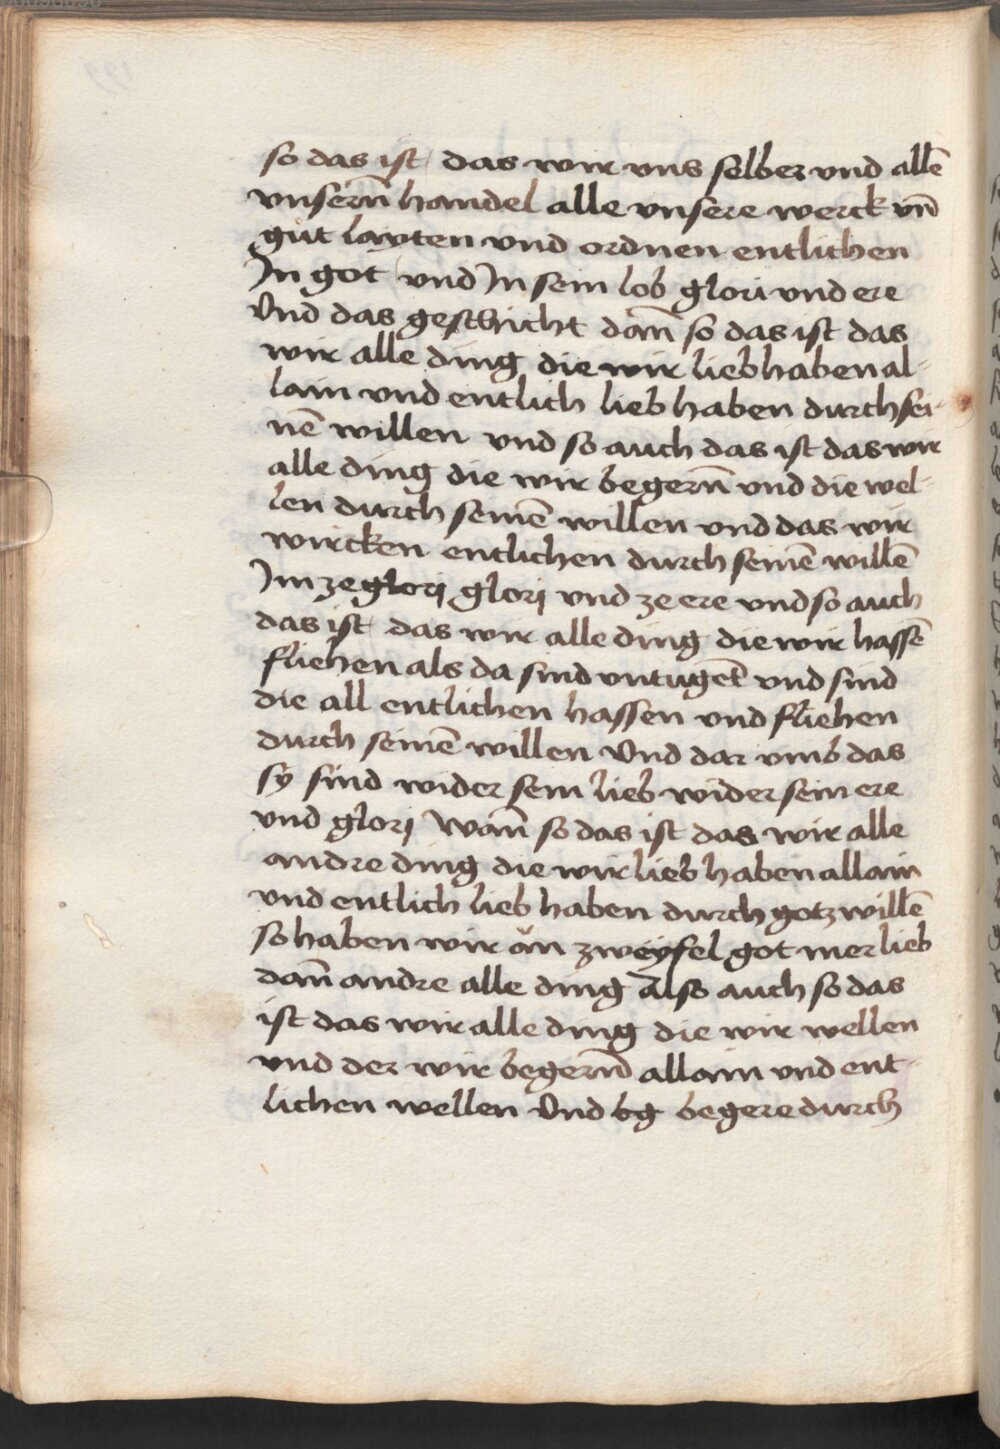 so das ist das wir vns selber vnd allē
vnserñ handel alle vnsere werck vñ
gůt layten vnd ordnen entlichen
In got vnd In sein lob glori vnd ere
Vnd das geschicht dañ so das ist das
wir alle ding die wir lieb haben al-
lain vnd entlich lieb haben durch sei-
nē willen vnd so auch das ist das wir
alle ding die wir begerñ vnd die wel-
len durch seinē willen vnd das wir
wircken entlichen durch seinē willē
Im ze glorj glorj vnd ze ere vnd so auch
das ist das wir alle ding die wir hassē
fliehen als da sind vntugēt vnd sind
die all entlichen hassen vnd fliehen
durch seinē willen Vnd dar vmb das
sy sind wider sein lieb wider sein ere
vnd glorj Wañ so das ist das wir alle
andre ding die wir lieb haben allain
vnd entlich lieb haben durch gotz willē
so haben wir ăn zweyfel got mer lieb
dañ andre alle ding Also auch so das
ist das wir alle ding die wir wellen
vnd der wir begerñd allain vnd ent-
lichen wellen Vnd bg begere durch